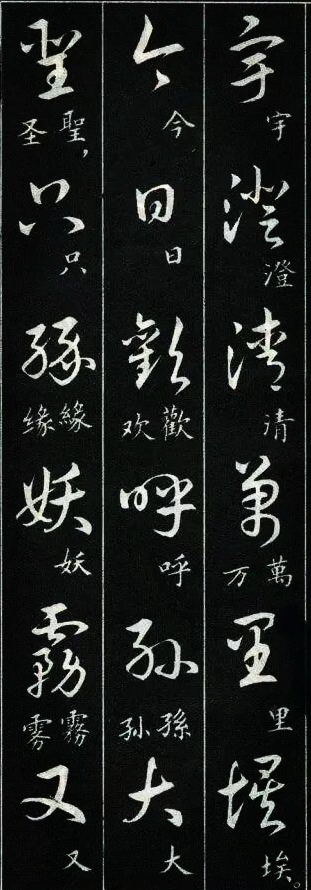 宇宇澄澄清清萬萬万里里埃埃。
今今日日歡歡欢呼呼孫孫孙大大
聖聖，圣只只緣緣缘妖妖霧霧雾又又